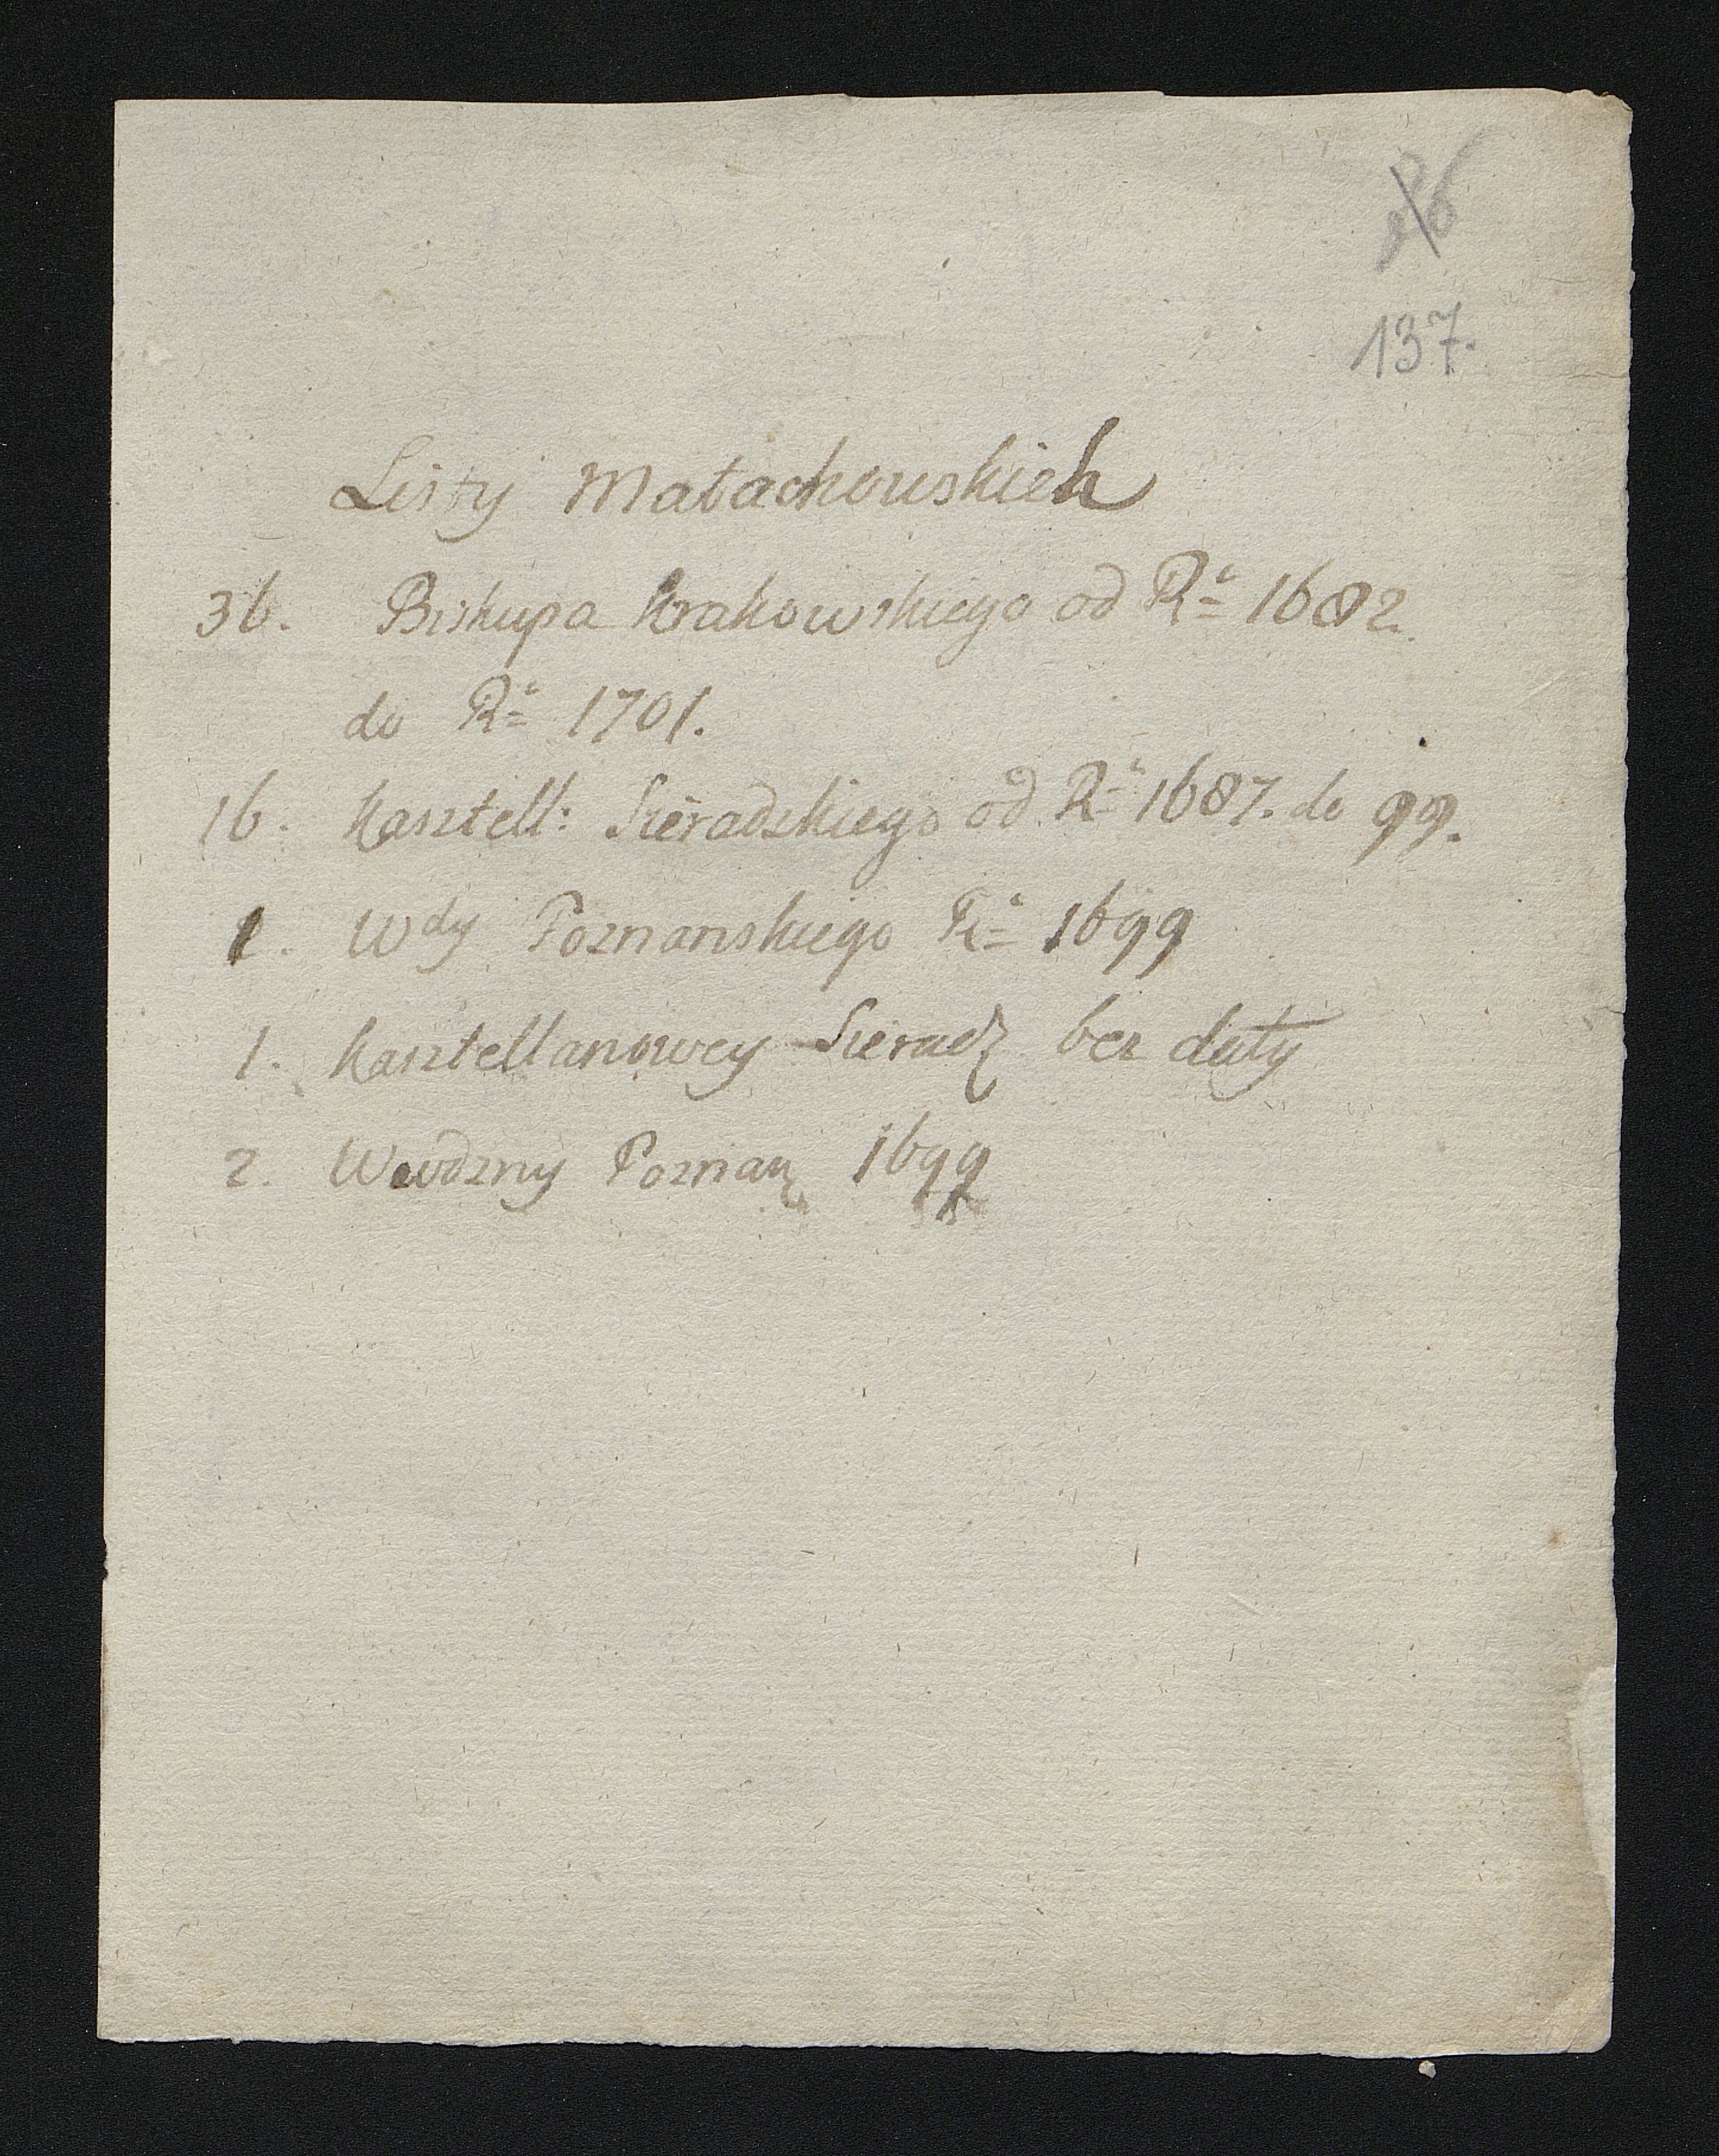 137.
Listy Małachowskich
36. Biskupa Krakowskiego od Rᵘ 1682.
do Rᵘ 1701.
16. Kasztell: Sieradzkiego od Rᵘ 1687. do 99.
1. Wdy Poznanskiego Rᵘ 1699
1. Kasztellanowey Sieradz bez daty
2. Wewdzny Poznan 1699